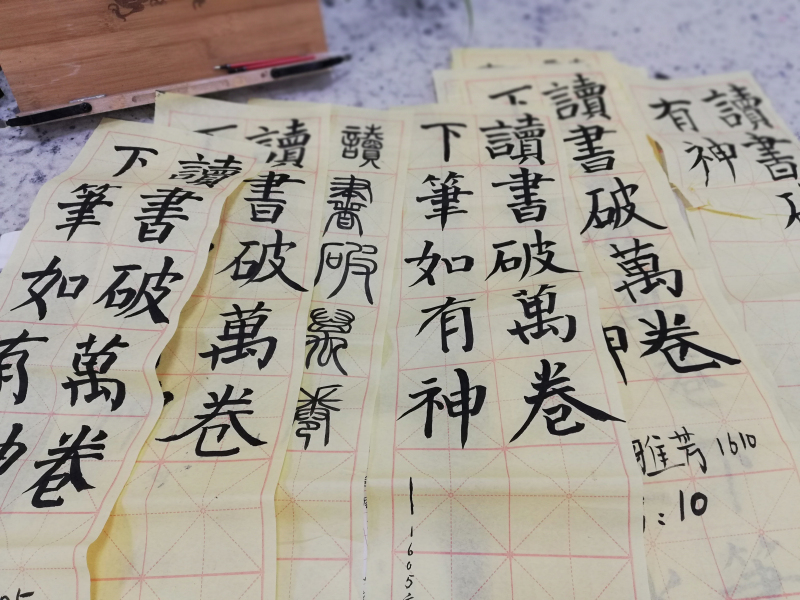 讀書破萬卷
下筆如有神
1605
讀書破萬卷
讀書破萬卷
下
讀書破萬卷
下筆如有
讀書破萬卷
下
雅芳 1610
:10
讀書破
有神